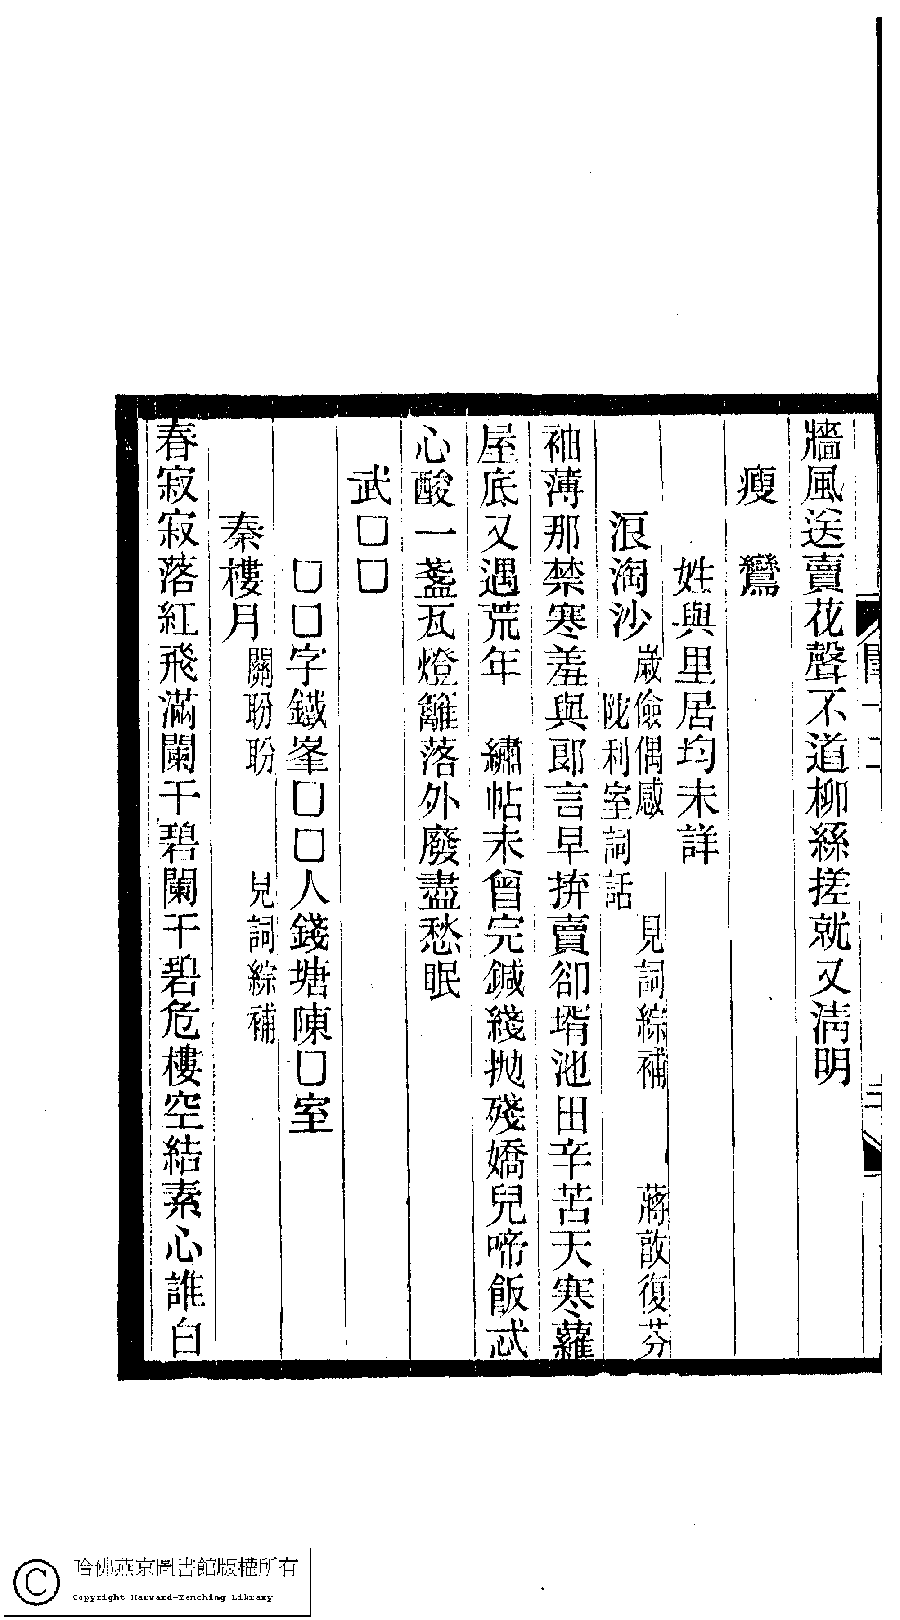 牆風送賣花聲不道柳絲搓就又淸明
瘦鸞
姓與里居均未詳
浪淘沙 歲儉偶感 見詞綜補 蔣敔復芬
陀利室詞話
屋底又遇荒年 繡帖未曾完鍼綫拋殘嬌兒啼飯忒
袖薄那禁寒羞與郞言早拚賣卻壻池田辛苦天寒蘿
心酸一盞瓦燈籬落外廢盡愁眠
武□□
□□字鐵峯□□人錢塘陳□室
秦樓月 關盼盼 見詞綜補
春寂寂落紅飛滿闌干碧闌干碧危樓空結素心誰白
哈佛燕京圖書館版權所有
Copyright Harvard-Yenching Library